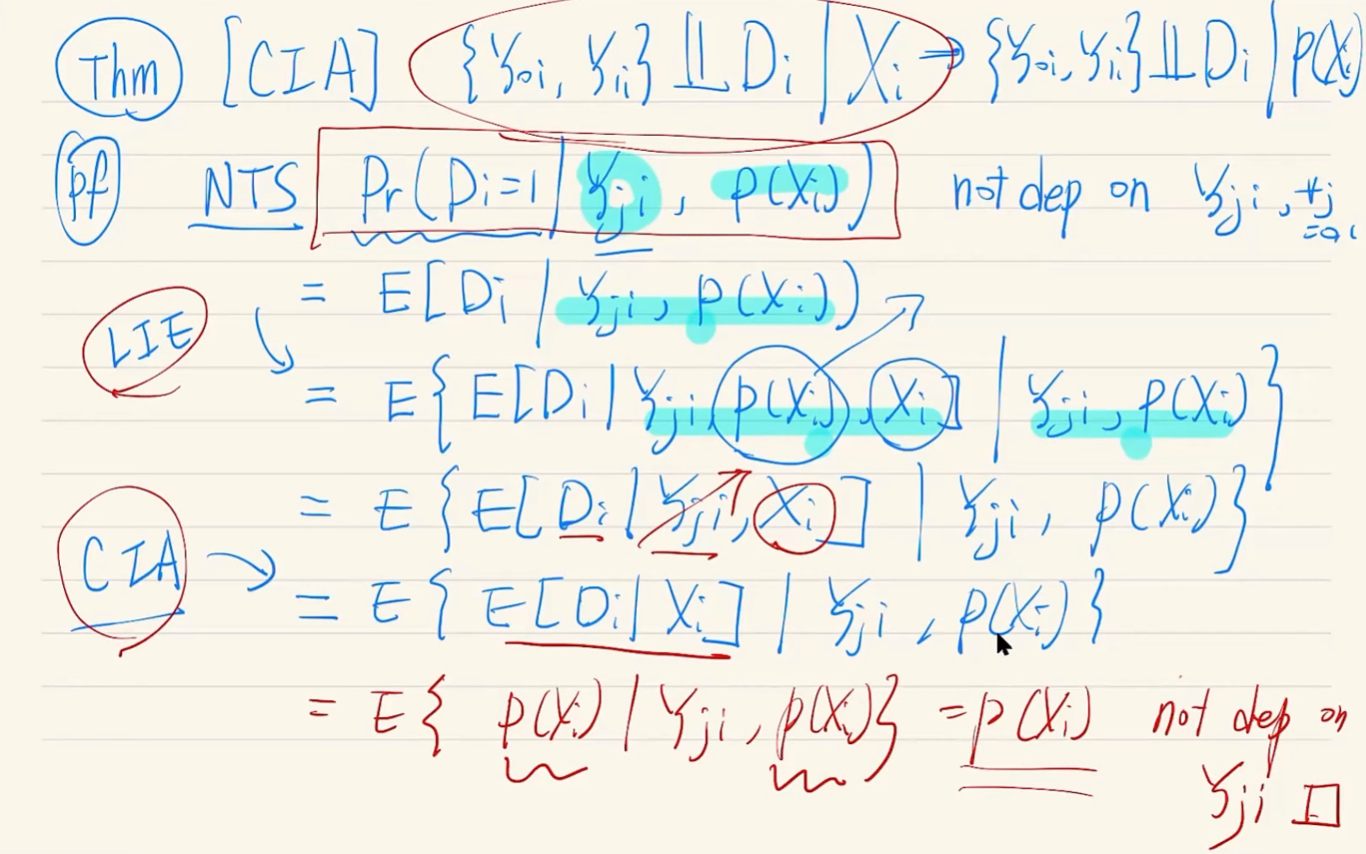 Thm [CIA] {Y₀ᵢ, Y₁ᵢ} ⫫ Dᵢ | Xᵢ ⇒ {Y₀ᵢ, Y₁ᵢ} ⫫ Dᵢ | p(Xᵢ)
pf NTS Pr(Dᵢ=1 | Yⱼᵢ, p(Xᵢ)) not dep on Yⱼᵢ, ∀j
= E[Dᵢ | Yⱼᵢ, p(Xᵢ))
LIE
= E{E[Dᵢ | Yⱼᵢ, p(Xᵢ), Xᵢ] | Yⱼᵢ, p(Xᵢ)}
= E{E[Dᵢ | Yⱼᵢ, Xᵢ] | Yⱼᵢ, p(Xᵢ)}
CIA
= E{E[Dᵢ | Xᵢ] | Yⱼᵢ, p(Xᵢ)}
= E{p(Xᵢ) | Yⱼᵢ, p(Xᵢ)} = p(Xᵢ) not dep on
Yⱼᵢ □